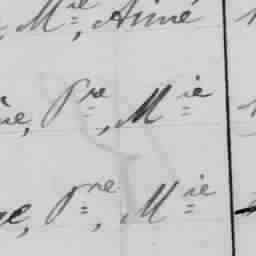 , Mie, Aimé
ne, Pre, Mie
ge, Pre, Mie